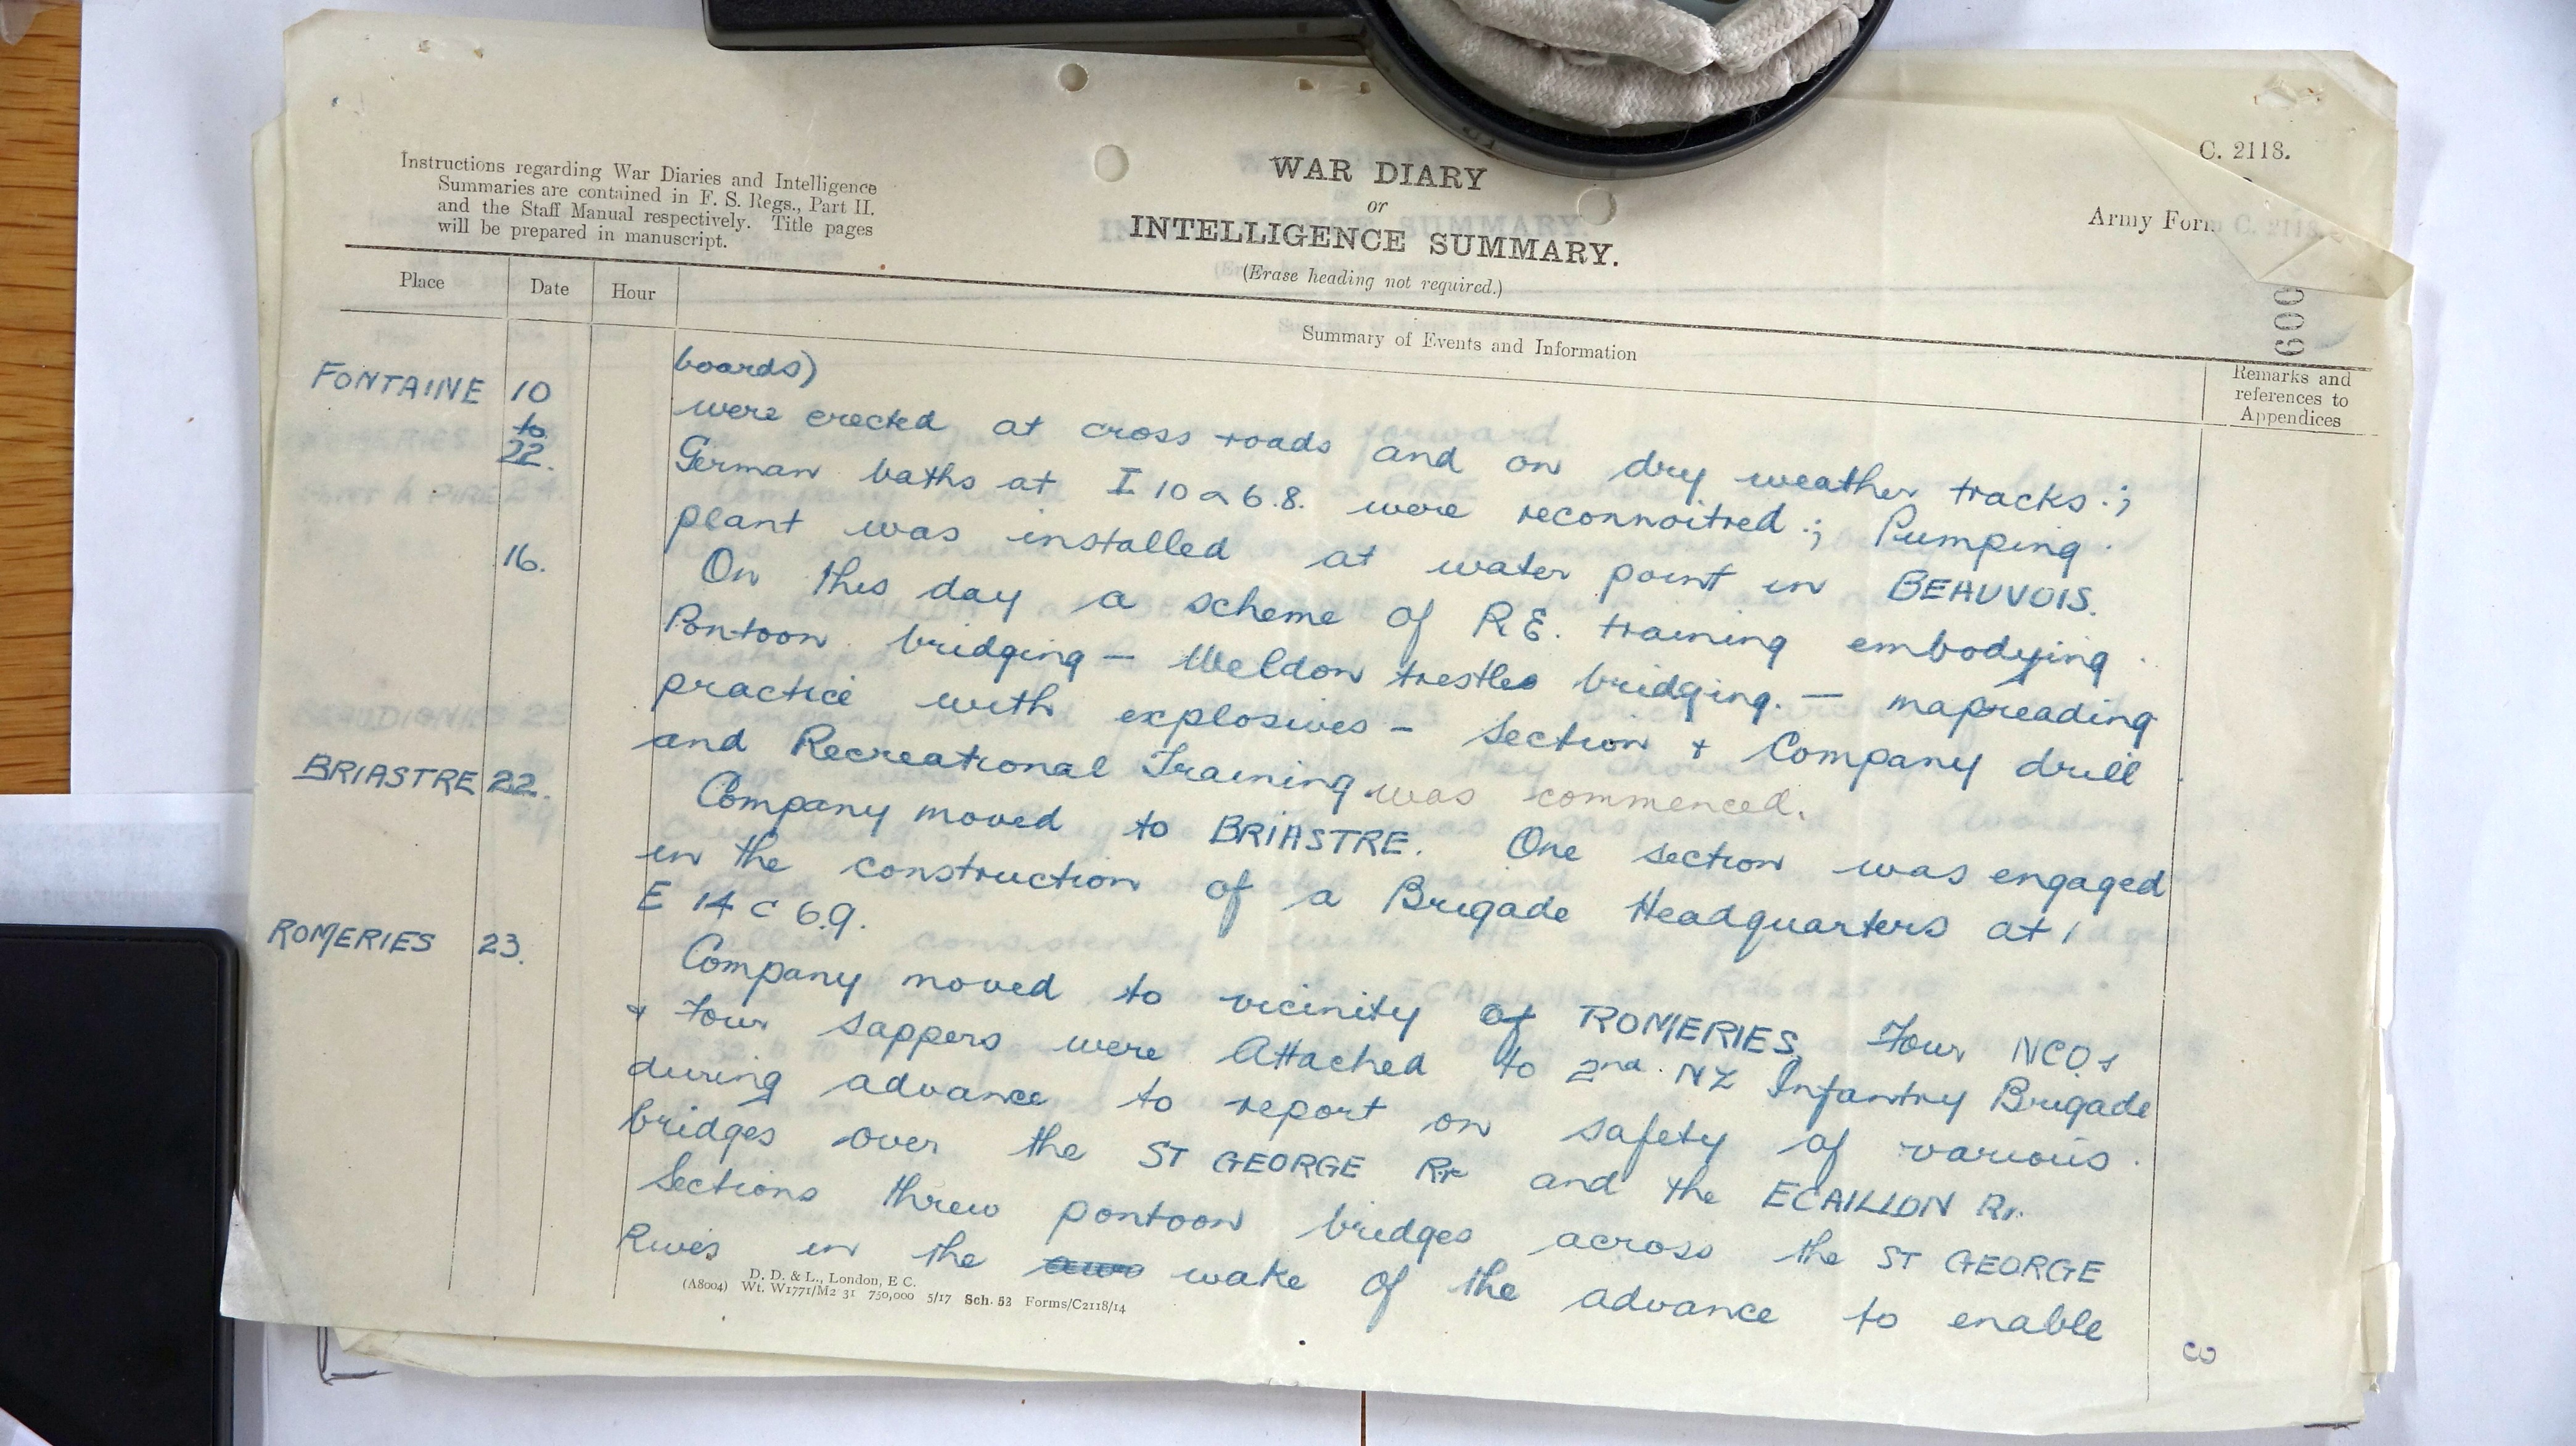 Instructions regarding War Diaries and Intelligence
Summaries are contained in F. S. Regs., Part II.
and the Staff Manual respectively. Title pages
will be prepared in manuscript.
WAR DIARY
or
INTELLIGENCE SUMMARY.
(Erase heading not required.)
C. 2118.
Army Form C. 2118.
Place Date Hour Summary of Events and Information Remarks and references to Appendices
boards)
FONTAINE 10 to 22. were erected at cross roads and on dry weather tracks.;
German baths at I 10 a 6.8. were reconnoitred.; Pumping
plant was installed at water point in BEAUVOIS.
16. On this day a scheme of R.E. training embodying
Pontoon bridging — Weldon trestles bridging. — mapreading
practice with explosives — Section + Company drill
and Recreational Training was commenced.
BRIASTRE 22. Company moved to BRIASTRE. One section was engaged
in the construction of a Brigade Headquarters at
E 14 c 6.9.
ROMERIES 23. Company moved to vicinity of ROMERIES, Four NCOs
+ Four sappers were Attached to 2nd. NZ Infantry Brigade
during advance to report on safety of various
bridges over the ST GEORGE Rr and the ECAILLON Rr.
Sections threw pontoon bridges across the ST GEORGE
River in the wake of the advance to enable
D. D. & L., London, E C.
(A8004) Wt. W1771/M2 31 750,000 5/17 Sch. 53 Forms/C2118/14
3